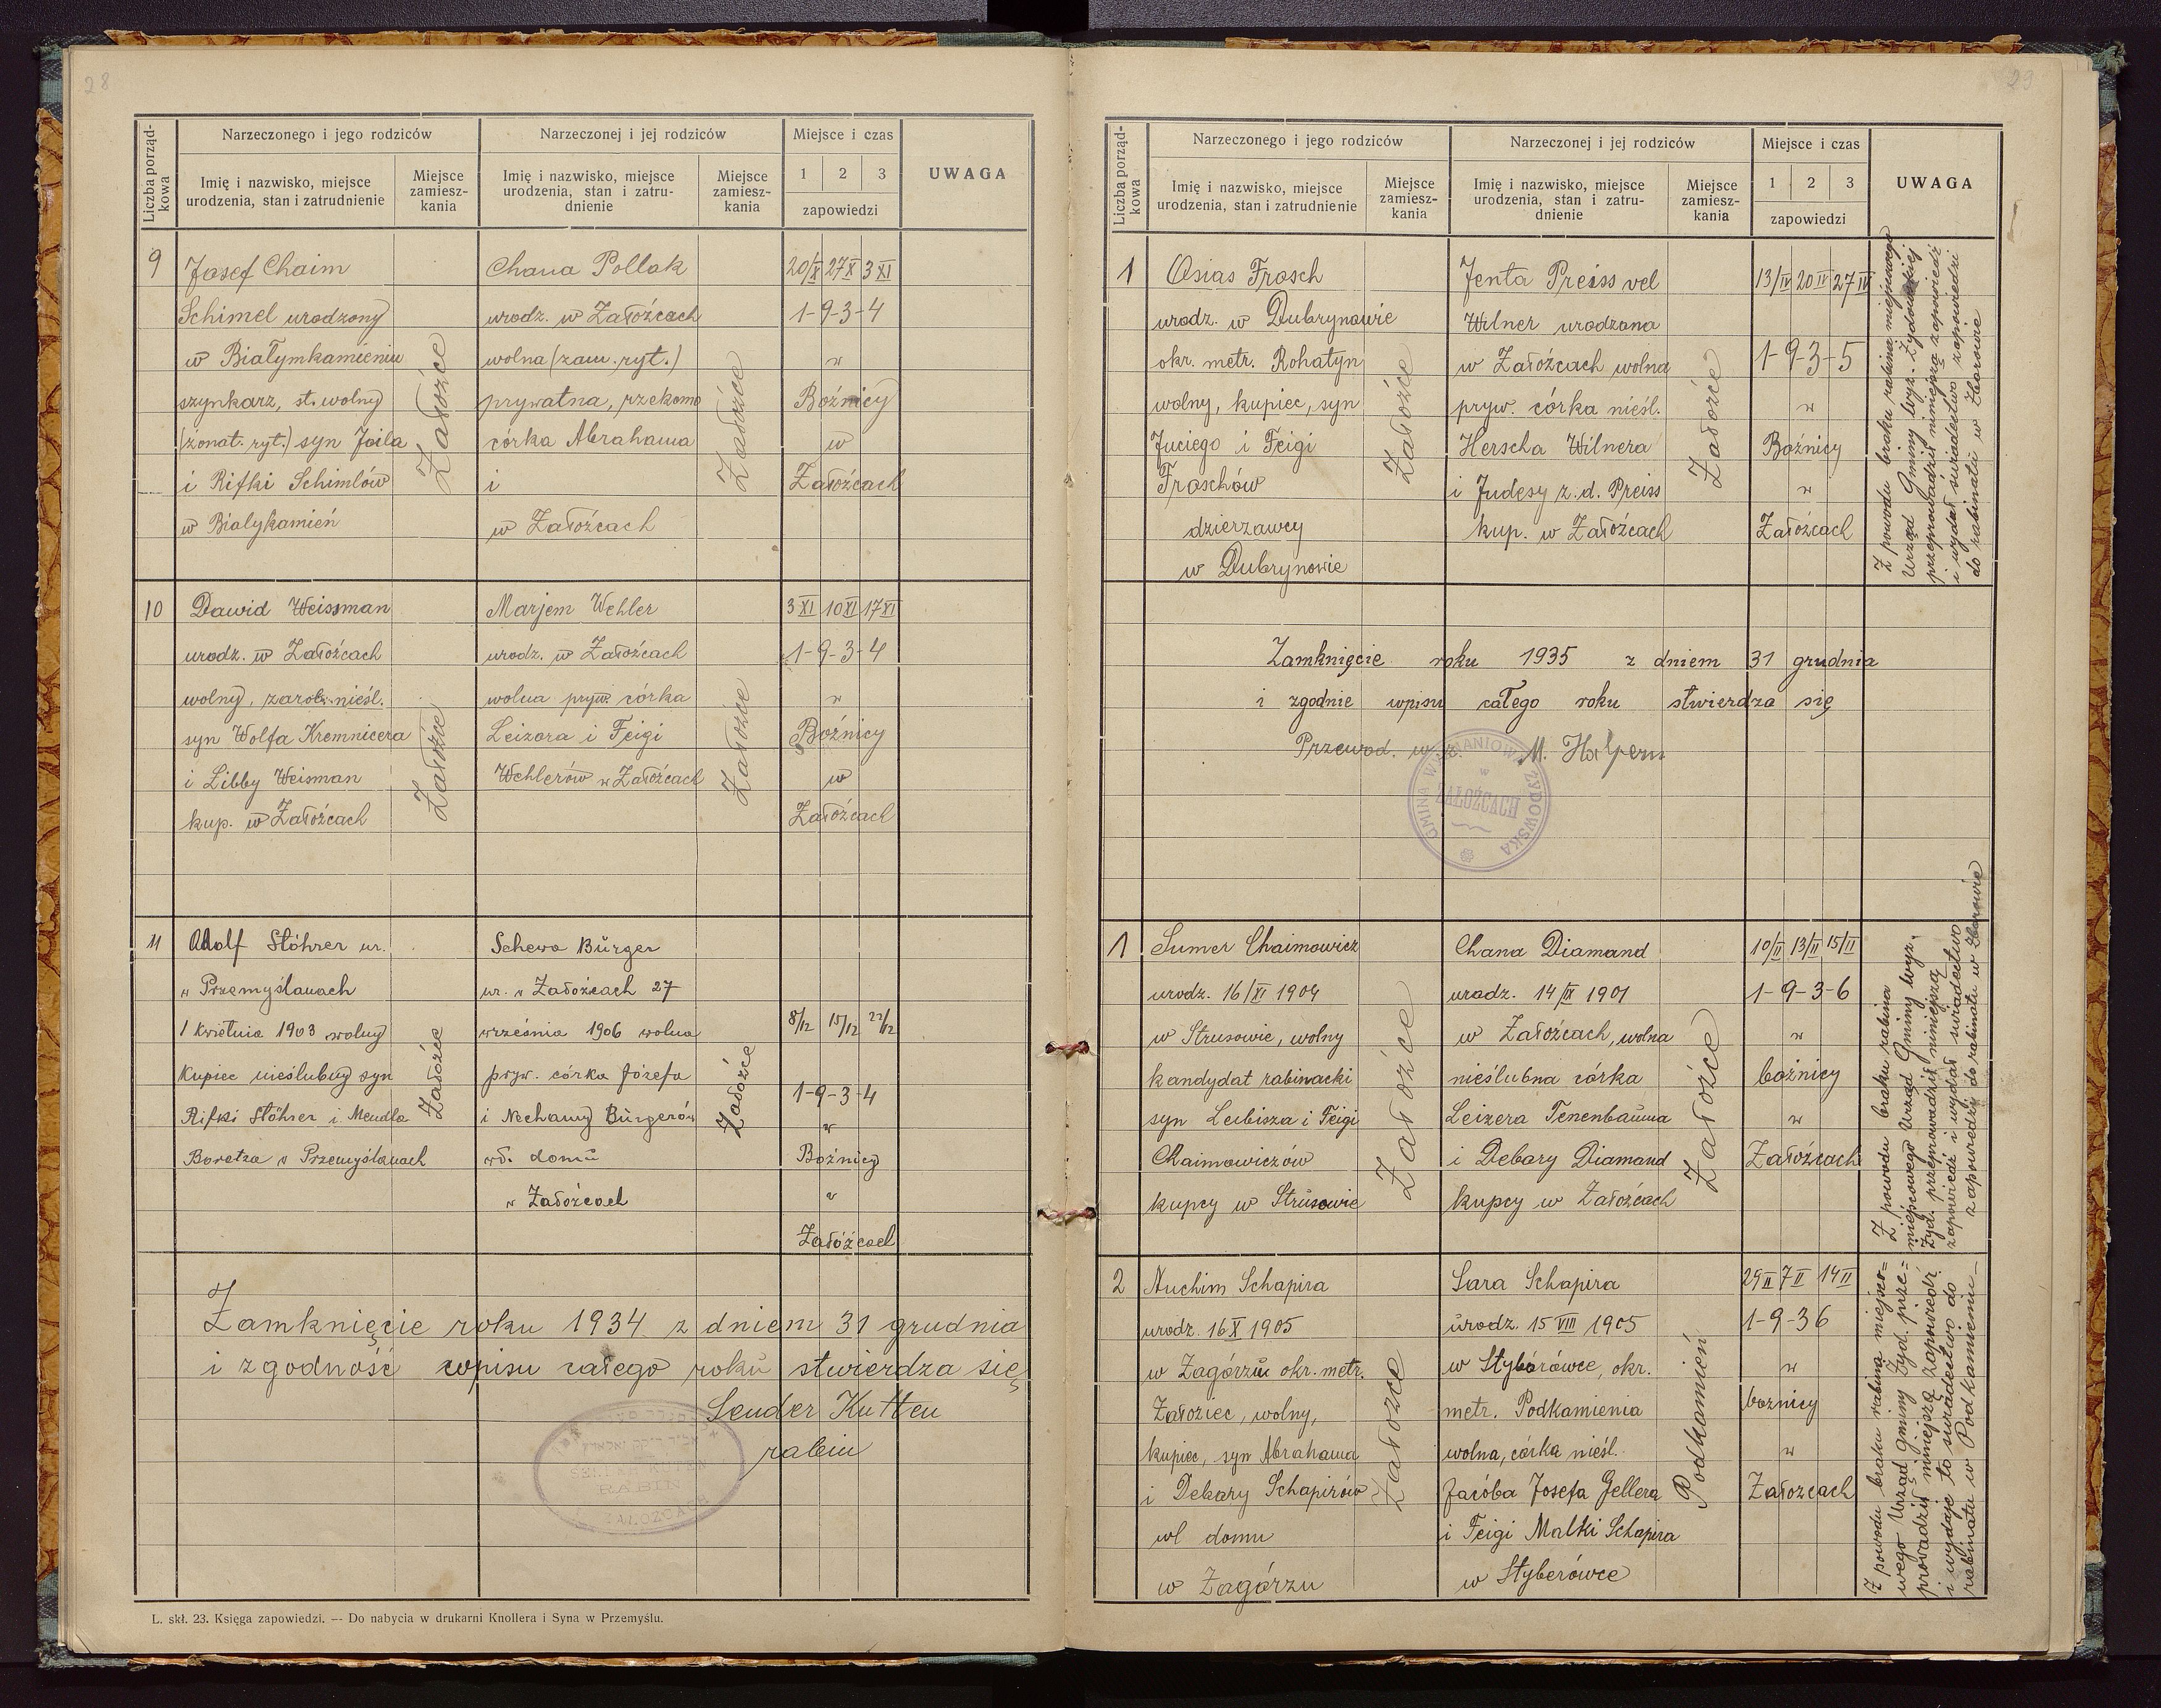 28
Liczba porząd-
kowa
Narzeczonego i jego rodziców
Narzeczonej i jej rodziców
Miejsce i czas
UWAGA
Imię i nazwisko, miejsce
urodzenia, stan i zatrudnienie
Miejsce
zamiesz-
kania
Imię i nazwisko, miejsce
urodzenia, stan i zatru-
dnienie
Miejsce
zamiesz-
kania
1 2 3
zapowiedzi
9
Josef Chaim
Schimel urodzony
w Białymkamieniu
szynkarz, st. wolny
(żonat. ryt.) syn Joila
i Rifki Schimlów
w Białykamień
Załoźce
Chana Pollak
urodz. w Załoźcach
wolna (zam. ryt.)
prywatna, rzekomo
córka Abrahama
i
w Załoźcach
Załoźce
20/X 27 X 3 XI
1-9-3-4
w
Bożnicy
w
Załoźcach
10
Dawid Weissman
urodz. w Załoźcach
wolny, zarob. nieśl.
syn Wolfa Kremnicera
i Libby Weisman
kup. w Załoźcach
Załoźce
Marjem Wehler
urodz. w Załoźcach
wolna pryw. córka
Leizora i Feigi
Wehlerów w Załoźcach
Załoźce
3 XI 10 XI 17 XI
1-9-3-4
w
Bożnicy
w
Załoźcach
11
Adolf Stöhrer ur.
w Przemyślanach
1 kwietnia 1903 wolny
Kupiec nieślubny syn
Rifki Stöhrer i Mendla
Boretza w Przemyślanach
Załoźce
Schewa Bürger
ur. w Załoźcach 27
września 1906 wolna
pryw. córka Józefa
i Nechamy Bürgerów
wł. domu
w Załoźcach
Załoźce
8/12 15/12 22/12
1-9-3-4
w
Bożnicy
w
Załoźcach
Zamknięcie roku 1934 z dniem 31 grudnia
i zgodność wpisu całego roku stwierdza się
Sender Kutten
rabin
RABIN
ZAŁOZCACH
L. skł. 23. Księga zapowiedzi. — Do nabycia w drukarni Knollera i Syna w Przemyślu.
29
Liczba porząd-
kowa
Narzeczonego i jego rodziców
Narzeczonej i jej rodziców
Miejsce i czas
UWAGA
Imię i nazwisko, miejsce
urodzenia, stan i zatrudnienie
Miejsce
zamiesz-
kania
Imię i nazwisko, miejsce
urodzenia, stan i zatru-
dnienie
Miejsce
zamiesz-
kania
1 2 3
zapowiedzi
1
Osias Frosch
urodz. w Dubrynowie
okr. metr. Rohatyn
wolny, kupiec, syn
Juciego i Feigi
Froschów
dzierzawcy
w Dubrynowie
Załoźce
Jenta Preiss vel
Wilner urodzona
w Załoźcach wolna
pryw. córka nieśl.
Herscha Wilnera
i Judesy z. d. Preiss
kup. w Załoźcach
Załoźce
13/IV 20 IV 27 IV
1-9-3-5
w
Bożnicy
w
Załoźcach
Z powodu braku rabina miejscowego
Urząd Gminy Wyz. Żydowskiej
przeprowadził niniejszą zapowiedź
i wydał świadectwo zapowiedzi
do rabinatu w Zborowie
Zamknięcie roku 1935 z dniem 31 grudnia
i zgodnie wpisu całego roku stwierdza się
Przewod. M. Halpern
GMINA WYZNANIOWA ŻYDOWSKA
w
ZAŁOŹCACH
1
Sumer Chaimowicz
urodz. 16/XI 1904
w Strusowie, wolny
kandydat rabinacki
syn Leibisza i Feigi
Chaimowiczów
kupcy w Strusowie
Załoźce
Chana Diamand
urodz. 14/IX 1901
w Załoźcach, wolna
nieślubna córka
Leizera Tenenbauma
i Debory Diamand
kupcy w Załoźcach
Załoźce
10/II 13/II 15/II
1-9-3-6
w
bożnicy
w
Załoźcach
Z powodu braku rabina
miejscowego Urząd Gminy Wyz.
Żyd. przeprowadził niniejszą
zapowiedź i wydał świadectwo
zapowiedzi do rabinatu w Zborowie
2
Nuchim Schapira
urodz. 16 X 1905
w Zagórzu okr. metr.
Załoziec, wolny,
kupiec, syn Abrahama
i Debory Schapirów
wł domu
w Zagórzu
Załoźce
Sara Schapira
urodz. 15 VIII 1905
w Styberówce, okr.
metr. Podkamienia
wolna, córka nieśl.
Jacóba Josefa Gellera
i Feigi Malki Schapira
w Styberówce
Podkamień
29 II 7 II 14 II
1-9-36
w
boznicy
w
Załozcach
Z powodu braku rabina miejsco=
wego Urząd Gminy Żyd. prze=
prowadził niniejszą zapowiedź
i wydaje to świadectwo do
rabinatu w Podkamieniu